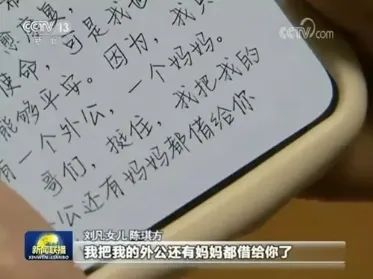 CCTV 13
新闻
cctv.com
愈
使命，可是我也
能够平安。因为，我只
有一个外公，一个妈妈。
哥们，挺住，我把我的
公还有妈妈都借给你
刘凡女儿 陈琪方
新闻联播
XINWEN LIANBO
我把我的外公还有妈妈都借给你了